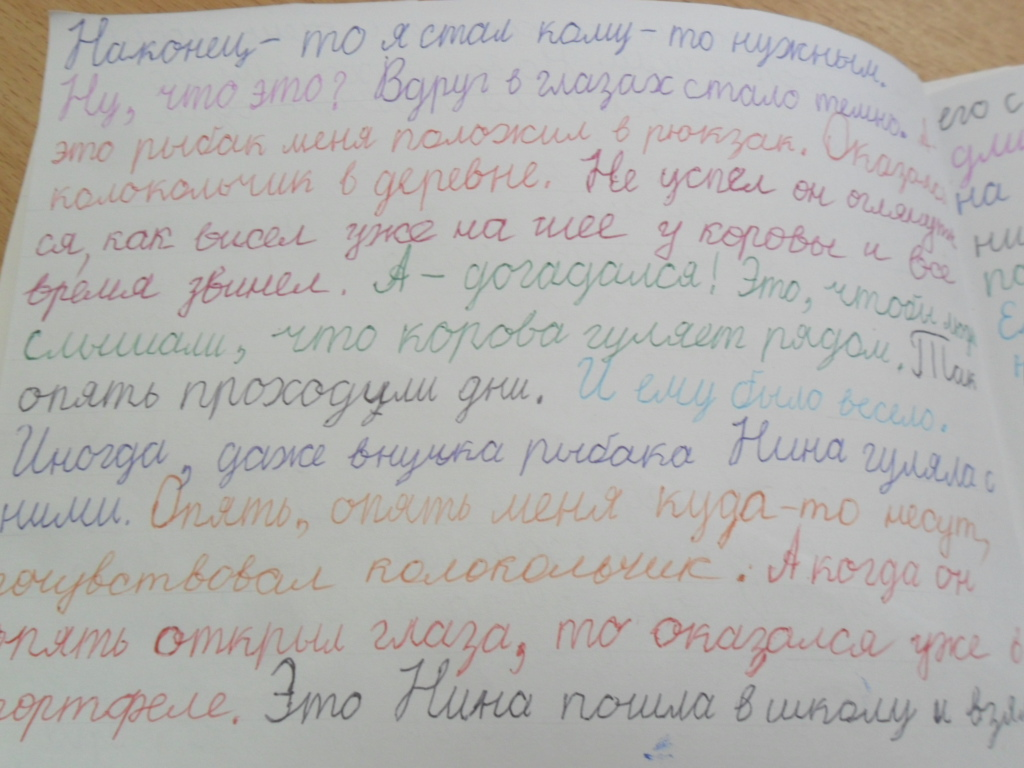 Наконец - то я стал кому - то нужным.
Ну, что это? Вдруг в глазах стало темно. А
это рыбак меня положил в рюкзак. Оказался
колокольчик в деревне. Не успел он оглянуть
ся, как висел уже на шее у коровы и все
время звинел. А - догадался! Это, чтобы люди
слышали, что корова гуляет рядом. Так
опять проходули дни. И ему было весело.
Иногда, даже внучка рыбака Нина гуляла с
ними. Опять, опять меня куда-то несут,
почувствовал колокольчик. А когда он
опять открыл глаза, то оказался уже в
портфеле. Это Нина пошла в школу и взял
его с
на